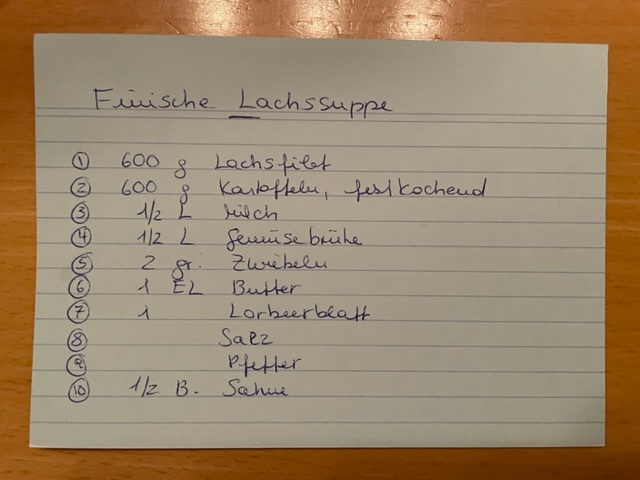 Finnische Lachssuppe
① 600 g Lachsfilet
② 600 g Kartoffeln, festkochend
③ 1/2 L Milch
④ 1/2 L Gemüsebrühe
⑤ 2 gr. Zwiebeln
⑥ 1 EL Butter
⑦ 1 Lorbeerblatt
⑧ Salz
⑨ Pfeffer
⑩ 1/2 B. Sahne